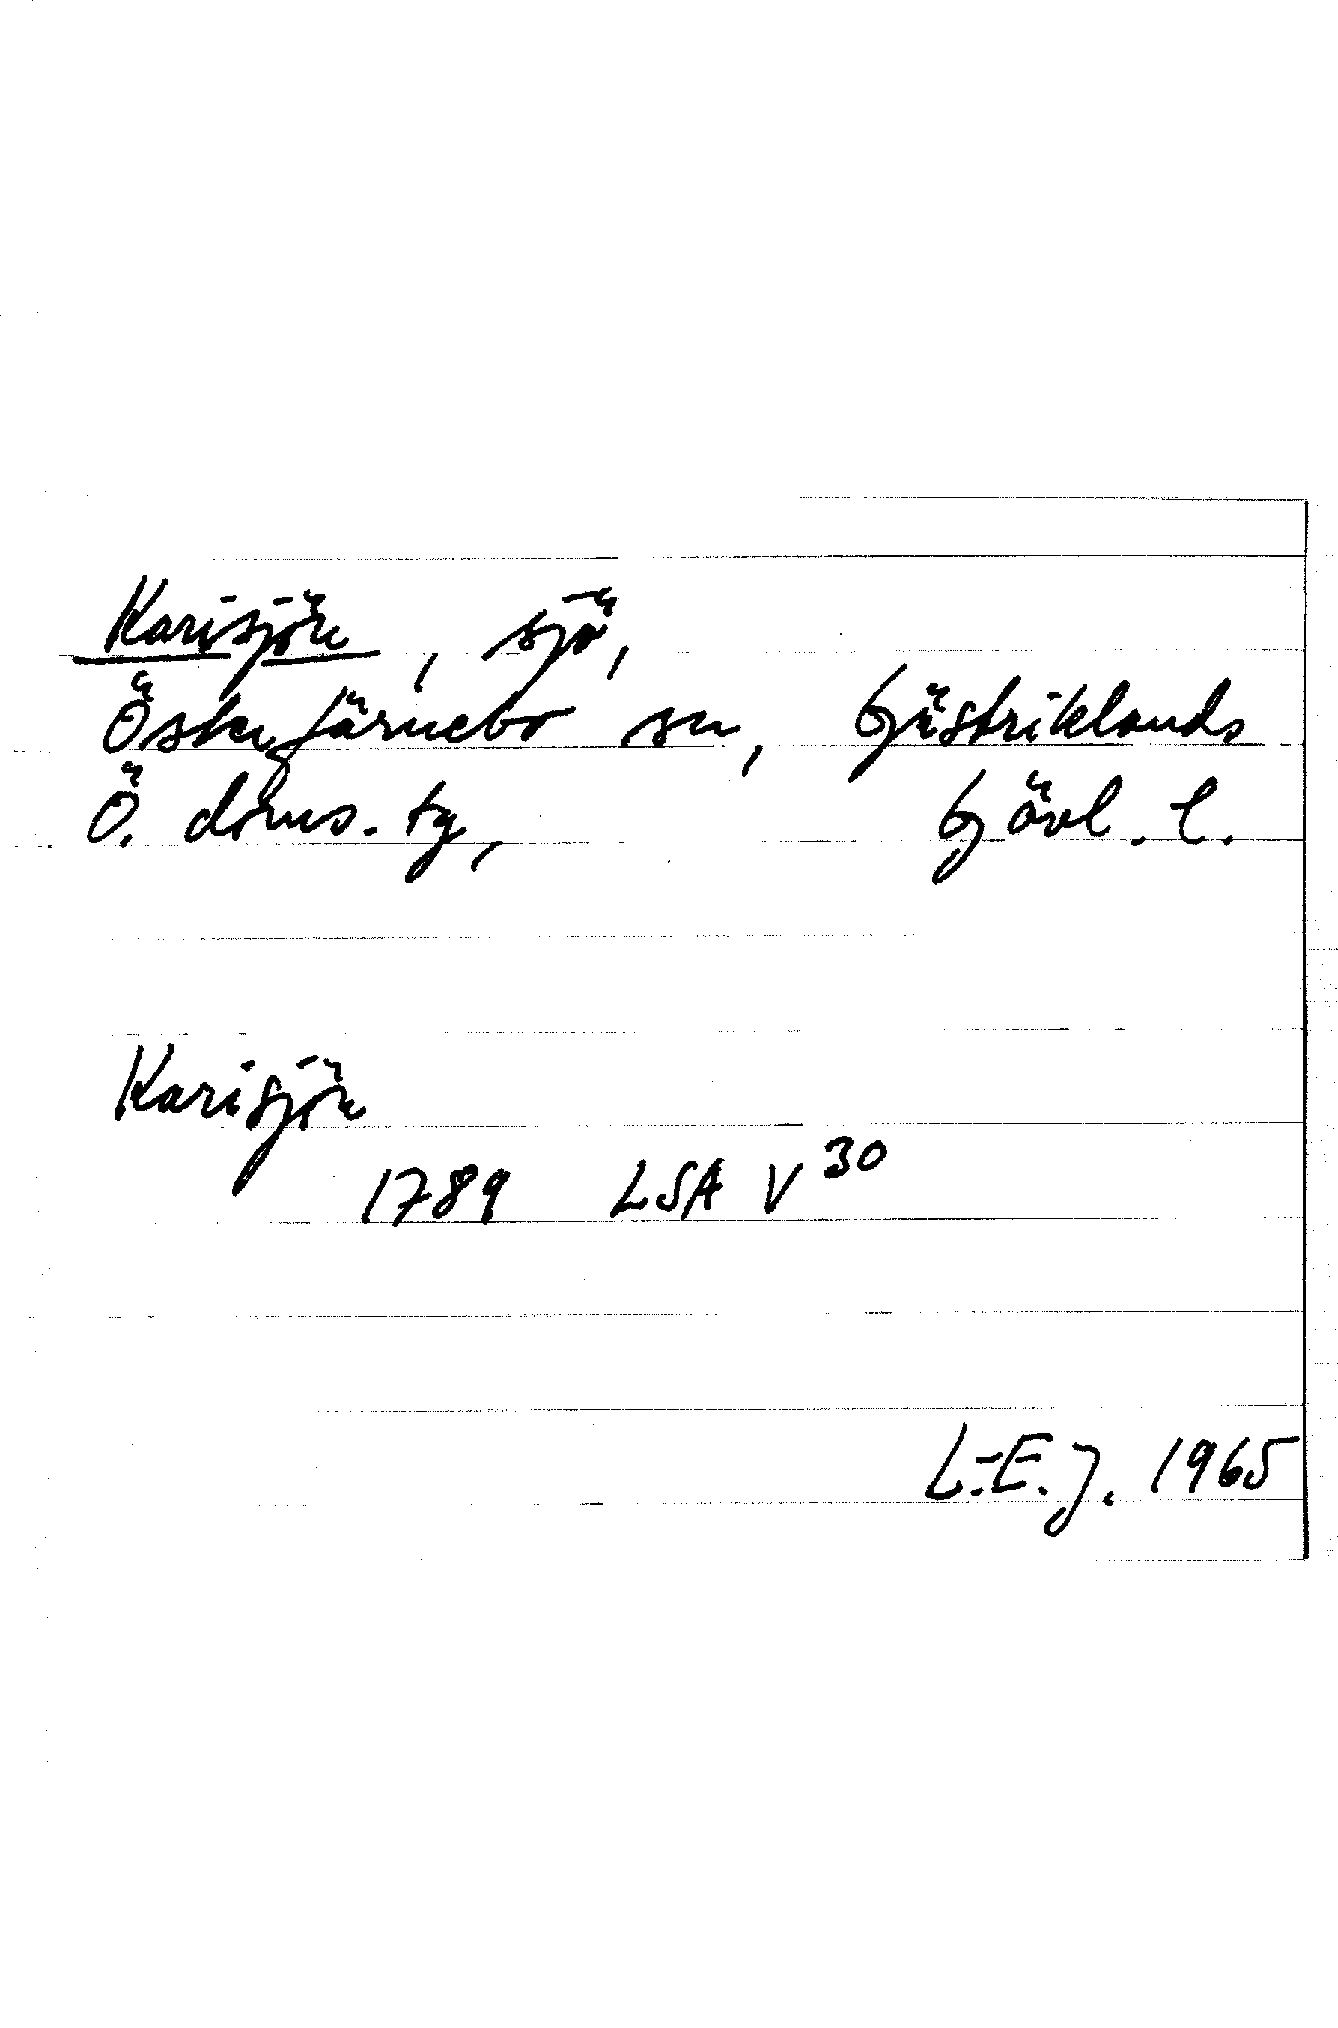 Karisjön, sjö,
Österfärnebo sn, Gästriklands
Ö. doms. tg, Gävl. l.
Karisjön
1789 LSA V 30
L.-E. J. 1965